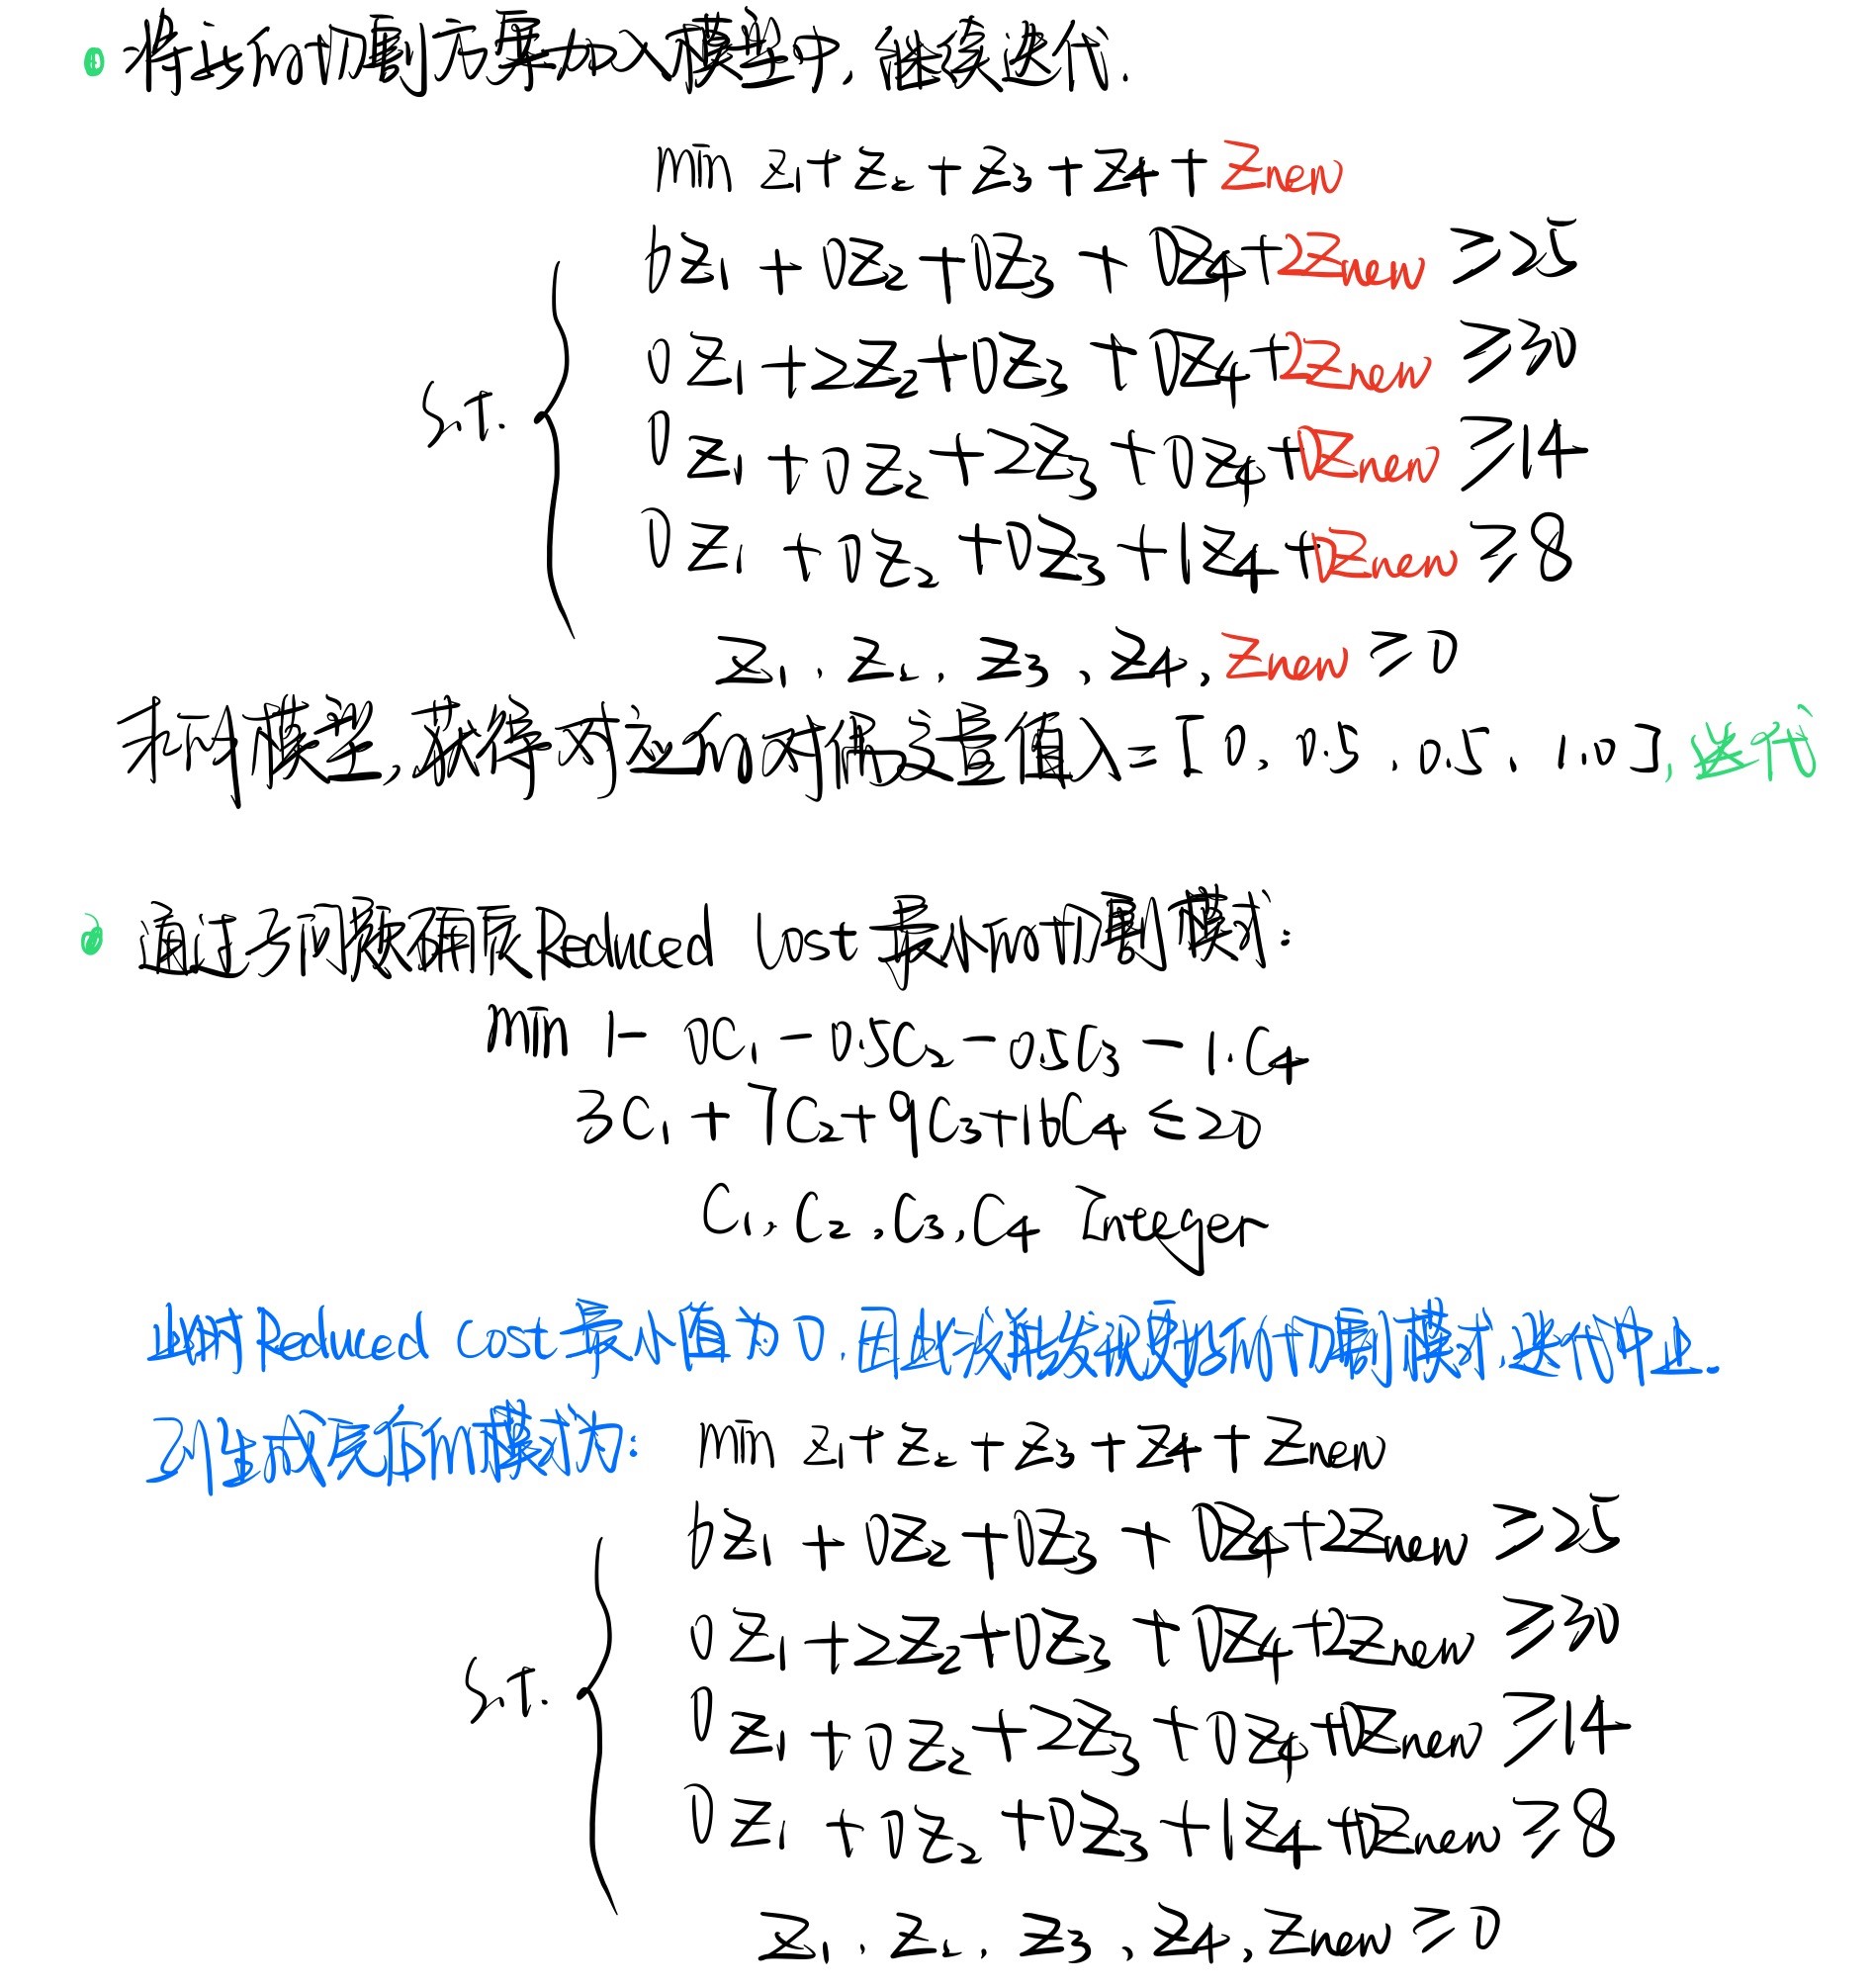 将此的切割方案加入模型中, 继续迭代.
min z₁+z₂+z₃+z₄+z_new
6z₁+0z₂+0z₃+0z₄+2z_new ≥25
0z₁+2z₂+0z₃+0z₄+2z_new ≥30
s.t.
0z₁+0z₂+2z₃+0z₄+0z_new ≥14
0z₁+0z₂+0z₃+1z₄+0z_new ≥8
z₁, z₂, z₃, z₄, z_new ≥0
求解模型, 获得对应的对偶变量值λ=[0, 0.5, 0.5, 1.0], 迭代
通过子问题确定Reduced Cost最小的切割模式:
min 1-0C₁-0.5C₂-0.5C₃-1.C₄
3C₁+7C₂+9C₃+16C₄≤20
C₁, C₂, C₃, C₄ Integer
此时Reduced Cost最小值为0, 因此没能发现更好的切割模式, 迭代中止.
列生成最后的模式为: min z₁+z₂+z₃+z₄+z_new
6z₁+0z₂+0z₃+0z₄+2z_new ≥25
0z₁+2z₂+0z₃+0z₄+2z_new ≥30
s.t.
0z₁+0z₂+2z₃+0z₄+0z_new ≥14
0z₁+0z₂+0z₃+1z₄+0z_new ≥8
z₁, z₂, z₃, z₄, z_new ≥0